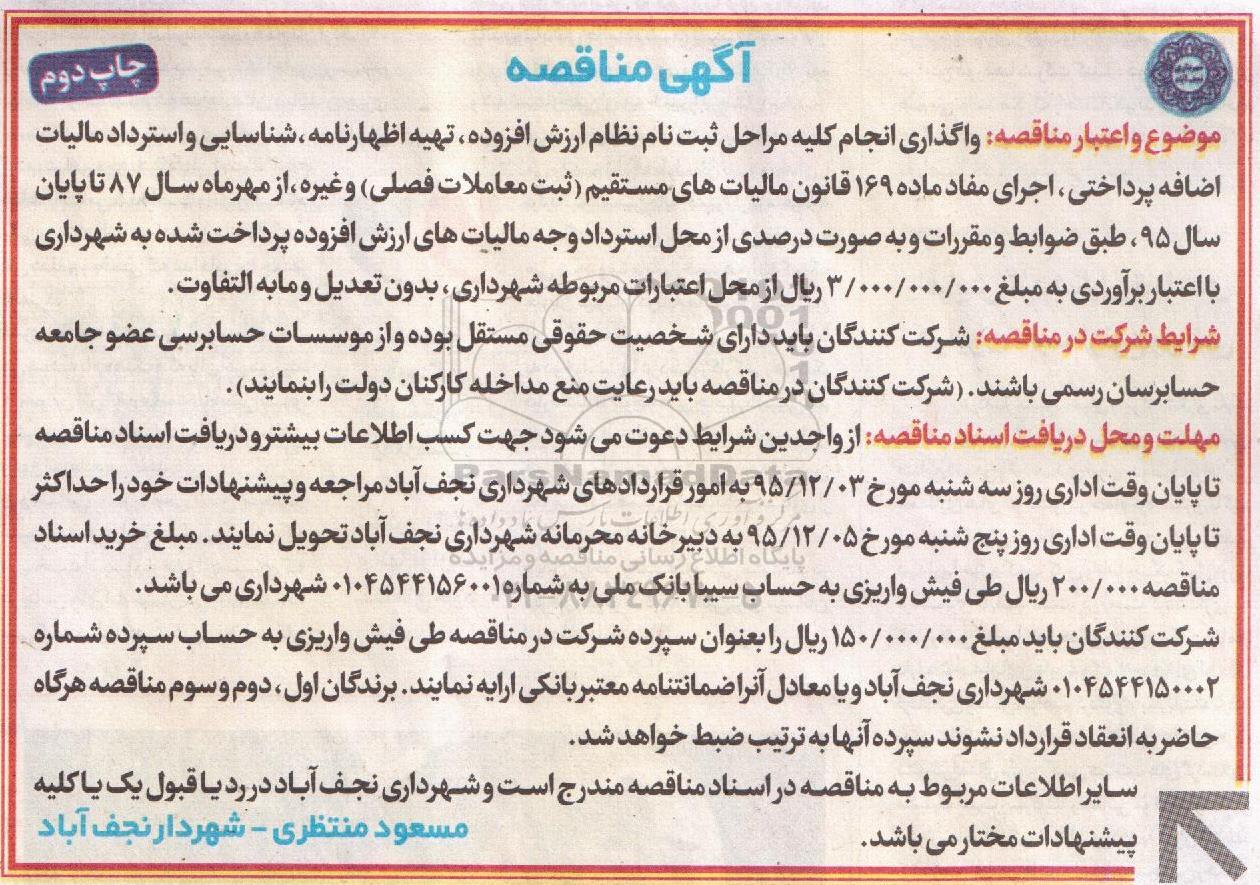 آگهی مناقصه
چاپ دوم
موضوع و اعتبار مناقصه: واگذاری انجام کلیه مراحل ثبت نام نظام ارزش افزوده، تهیه اظهارنامه، شناسایی و استرداد مالیات
اضافه پرداختی، اجرای مفاد ماده ۱۶۹ قانون مالیات های مستقیم (ثبت معاملات فصلی) و غیره، از مهرماه سال ۸۷ تا پایان
سال ۹۵، طبق ضوابط و مقررات و به صورت درصدی از محل استرداد وجه مالیات های ارزش افزوده پرداخت شده به شهرداری
با اعتبار برآوردی به مبلغ ۳/۰۰۰/۰۰۰/۰۰۰ ریال از محل اعتبارات مربوطه شهرداری، بدون تعدیل و مابه التفاوت.
شرایط شرکت در مناقصه: شرکت کنندگان باید دارای شخصیت حقوقی مستقل بوده و از موسسات حسابرسی عضو جامعه
حسابرسان رسمی باشند. (شرکت کنندگان در مناقصه باید رعایت منع مداخله کارکنان دولت را بنمایند).
مهلت و محل دریافت اسناد مناقصه: از واجدین شرایط دعوت می شود جهت کسب اطلاعات بیشتر و دریافت اسناد مناقصه
تا پایان وقت اداری روز سه شنبه مورخ ۹۵/۱۲/۰۳ به امور قراردادهای شهرداری نجف آباد مراجعه و پیشنهادات خود را حداکثر
تا پایان وقت اداری روز پنج شنبه مورخ ۹۵/۱۲/۰۵ به دبیرخانه محرمانه شهرداری نجف آباد تحویل نمایند. مبلغ خرید اسناد
مناقصه ۲۰۰/۰۰۰ ریال طی فیش واریزی به حساب سیبا بانک ملی به شماره ۰۱۰۴۵۴۴۱۵۶۰۰۱ شهرداری می باشد.
شرکت کنندگان باید مبلغ ۱۵۰/۰۰۰/۰۰۰ ریال را بعنوان سپرده شرکت در مناقصه طی فیش واریزی به حساب سپرده شماره
۰۱۰۴۵۴۴۱۵۰۰۰۲ شهرداری نجف آباد و یا معادل آنرا ضمانتنامه معتبر بانکی ارایه نمایند. برندگان اول، دوم و سوم مناقصه هرگاه
حاضر به انعقاد قرارداد نشوند سپرده آنها به ترتیب ضبط خواهد شد.
سایر اطلاعات مربوط به مناقصه در اسناد مناقصه مندرج است و شهرداری نجف آباد در رد یا قبول یک یا کلیه
پیشنهادات مختار می باشد.
مسعود منتظری - شهردار نجف آباد
ParsNamadData
پایگاه اطلاع رسانی مناقصه و مزایده